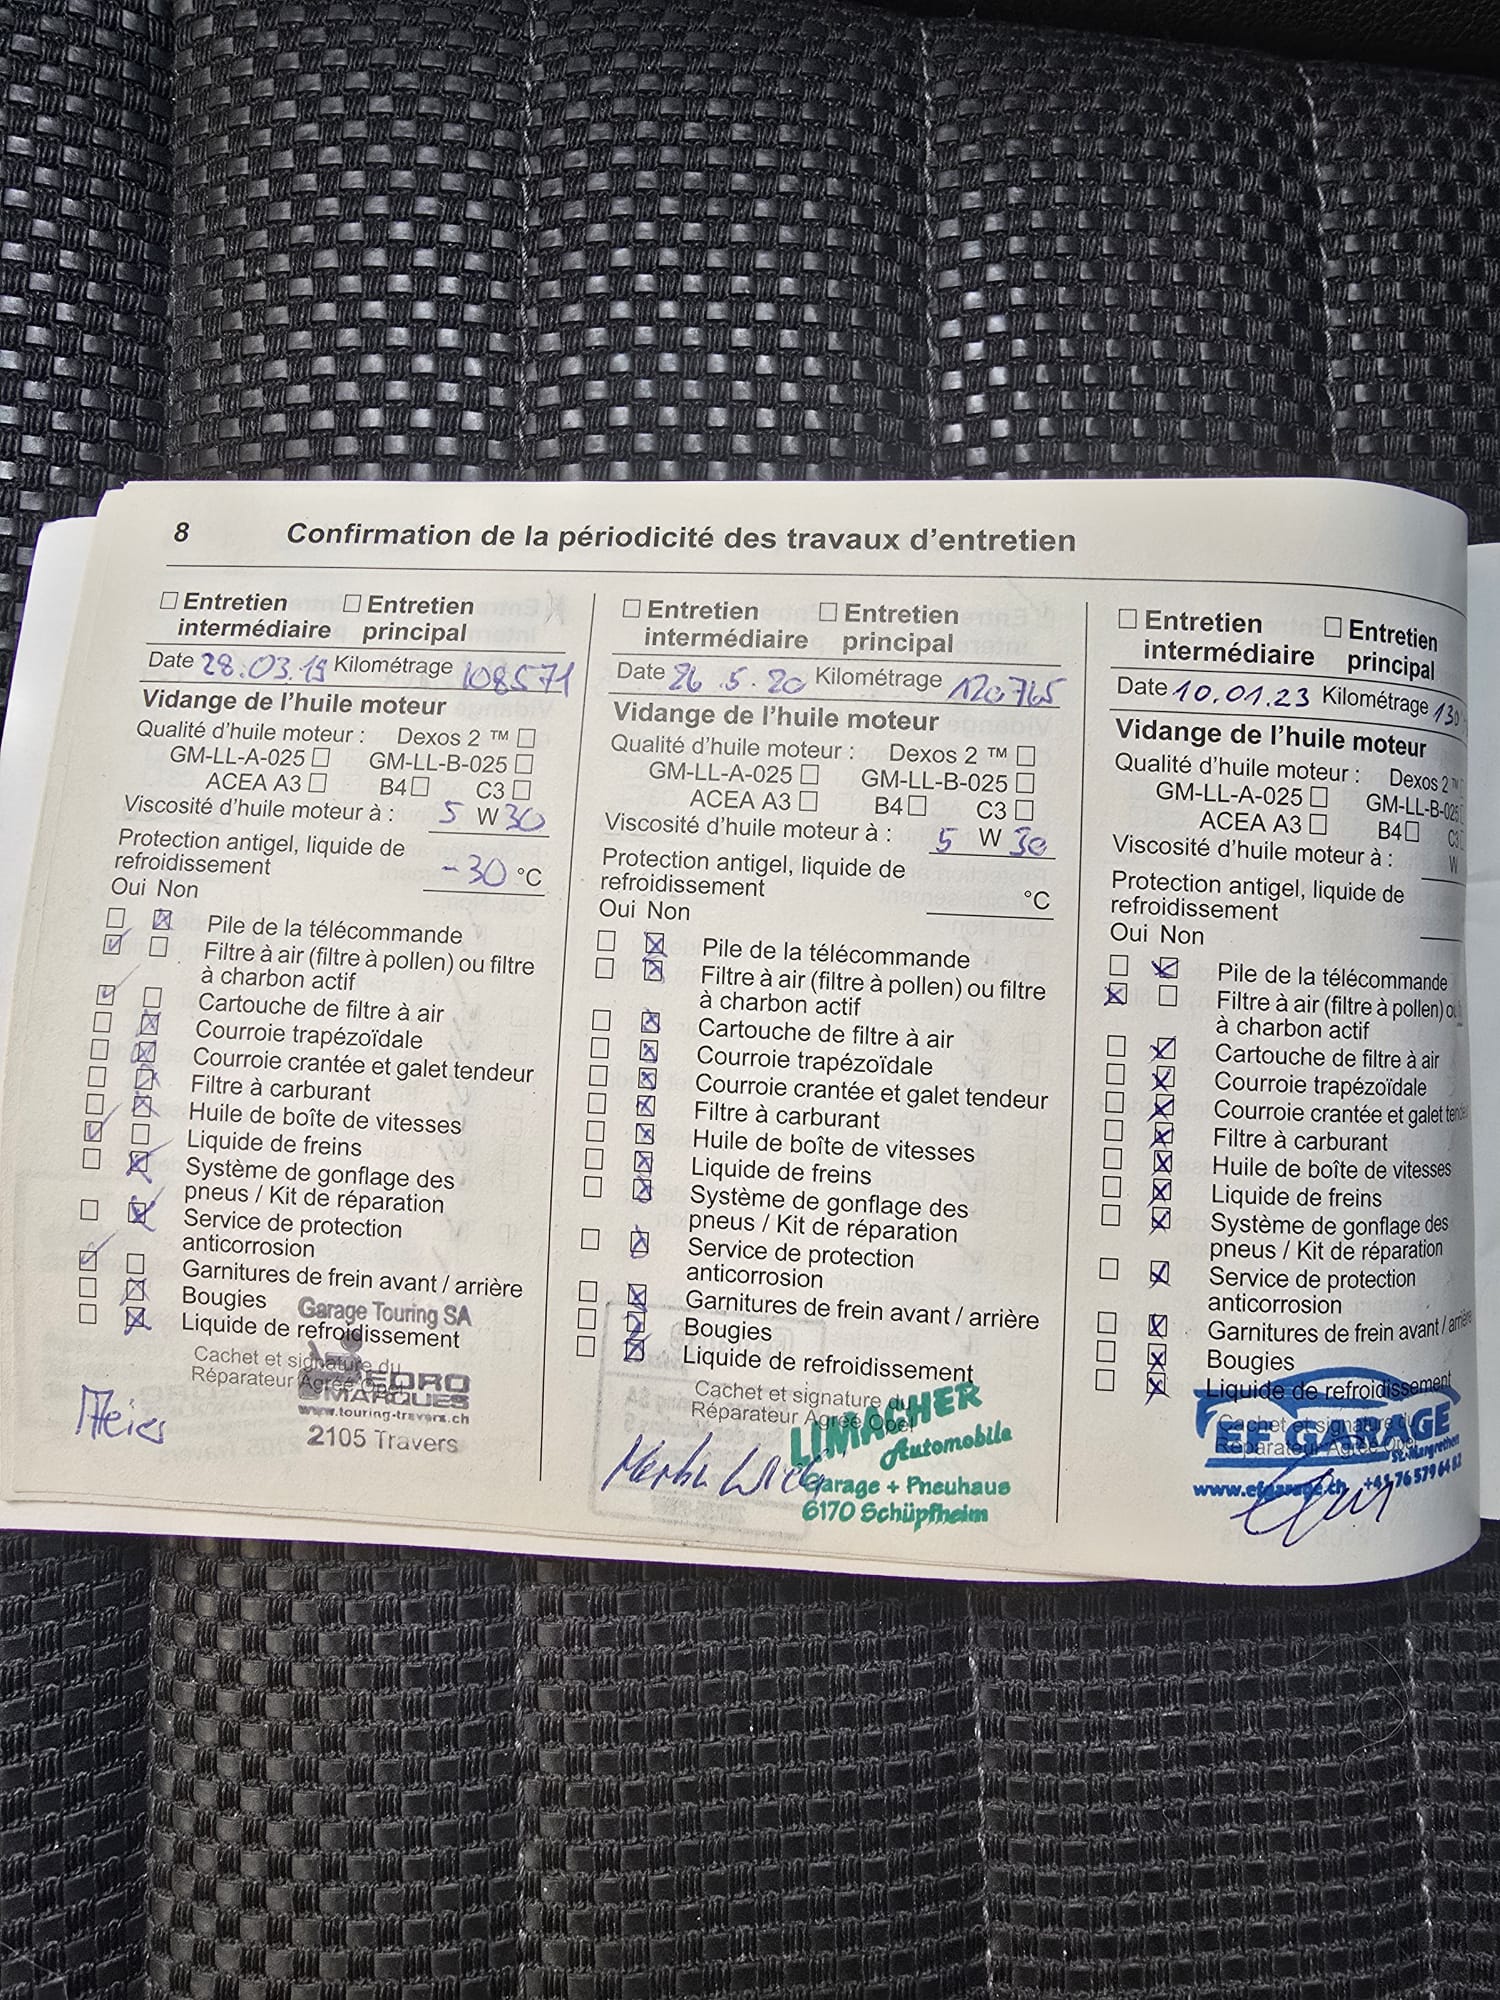 8 Confirmation de la périodicité des travaux d'entretien
☐ Entretien intermédiaire ☐ Entretien principal
Date 28.03.19 Kilométrage 108571
Vidange de l'huile moteur
Qualité d'huile moteur : Dexos 2 ™ ☐
GM-LL-A-025 ☐ GM-LL-B-025 ☐
ACEA A3 ☐ B4 ☐ C3 ☐
Viscosité d'huile moteur à : 5 W 30
Protection antigel, liquide de
refroidissement -30 °C
Oui Non
Pile de la télécommande
Filtre à air (filtre à pollen) ou filtre
à charbon actif
Cartouche de filtre à air
Courroie trapézoïdale
Courroie crantée et galet tendeur
Filtre à carburant
Huile de boîte de vitesses
Liquide de freins
Système de gonflage des
pneus / Kit de réparation
Service de protection
anticorrosion
Garnitures de frein avant / arrière
Bougies
Liquide de refroidissement
Cachet et signature du
Réparateur Agréé Opel
Garage Touring SA
MARQUES
www.touring-travers.ch
2105 Travers
☐ Entretien intermédiaire ☐ Entretien principal
Date 26.5.20 Kilométrage 120765
Vidange de l'huile moteur
Qualité d'huile moteur : Dexos 2 ™ ☐
GM-LL-A-025 ☐ GM-LL-B-025 ☐
ACEA A3 ☐ B4 ☐ C3 ☐
Viscosité d'huile moteur à : 5 W 30
Protection antigel, liquide de
refroidissement °C
Oui Non
Pile de la télécommande
Filtre à air (filtre à pollen) ou filtre
à charbon actif
Cartouche de filtre à air
Courroie trapézoïdale
Courroie crantée et galet tendeur
Filtre à carburant
Huile de boîte de vitesses
Liquide de freins
Système de gonflage des
pneus / Kit de réparation
Service de protection
anticorrosion
Garnitures de frein avant / arrière
Bougies
Liquide de refroidissement
Cachet et signature du
Réparateur Agréé Opel
LIMACHER
Automobile
Garage + Pneuhaus
6170 Schüpfheim
☐ Entretien intermédiaire ☐ Entretien principal
Date 10.01.23 Kilométrage 130
Vidange de l'huile moteur
Qualité d'huile moteur : Dexos 2 ™
GM-LL-A-025 ☐ GM-LL-B-025
ACEA A3 ☐ B4 ☐ C3
Viscosité d'huile moteur à : W
Protection antigel, liquide de
refroidissement
Oui Non
Pile de la télécommande
Filtre à air (filtre à pollen) ou
à charbon actif
Cartouche de filtre à air
Courroie trapézoïdale
Courroie crantée et galet tende
Filtre à carburant
Huile de boîte de vitesses
Liquide de freins
Système de gonflage des
pneus / Kit de réparation
Service de protection
anticorrosion
Garnitures de frein avant / arrière
Bougies
Liquide de refroidissement
Cachet et signature du
Réparateur Agréé Opel
EF GARAGE
St. Margrethen
www.efgarage.ch +41 76 579 64 82